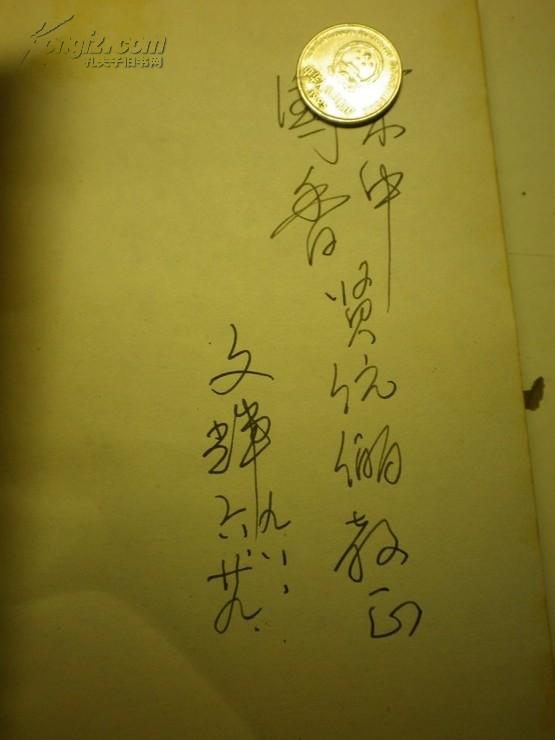 Kongfz.com
孔夫子旧书网
仲
香
贤伉俪教正
文辉
九八、
六、廿九.